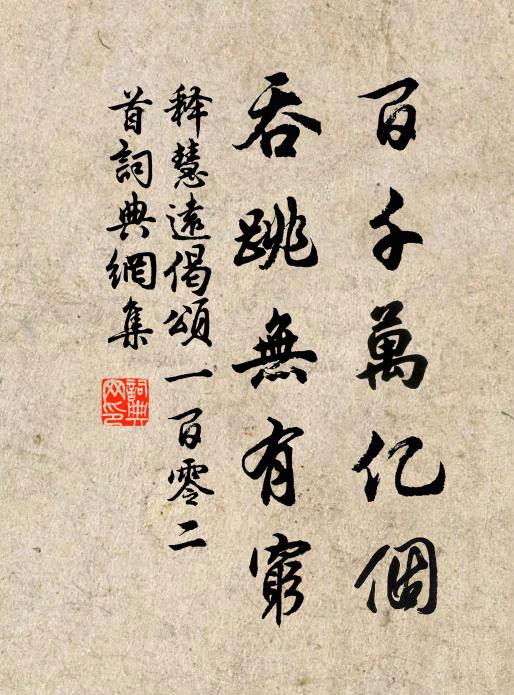 百千萬亿個
吞跳無有窮
释慧遠偈頌一百零二
首詞典網集
詞典
网印